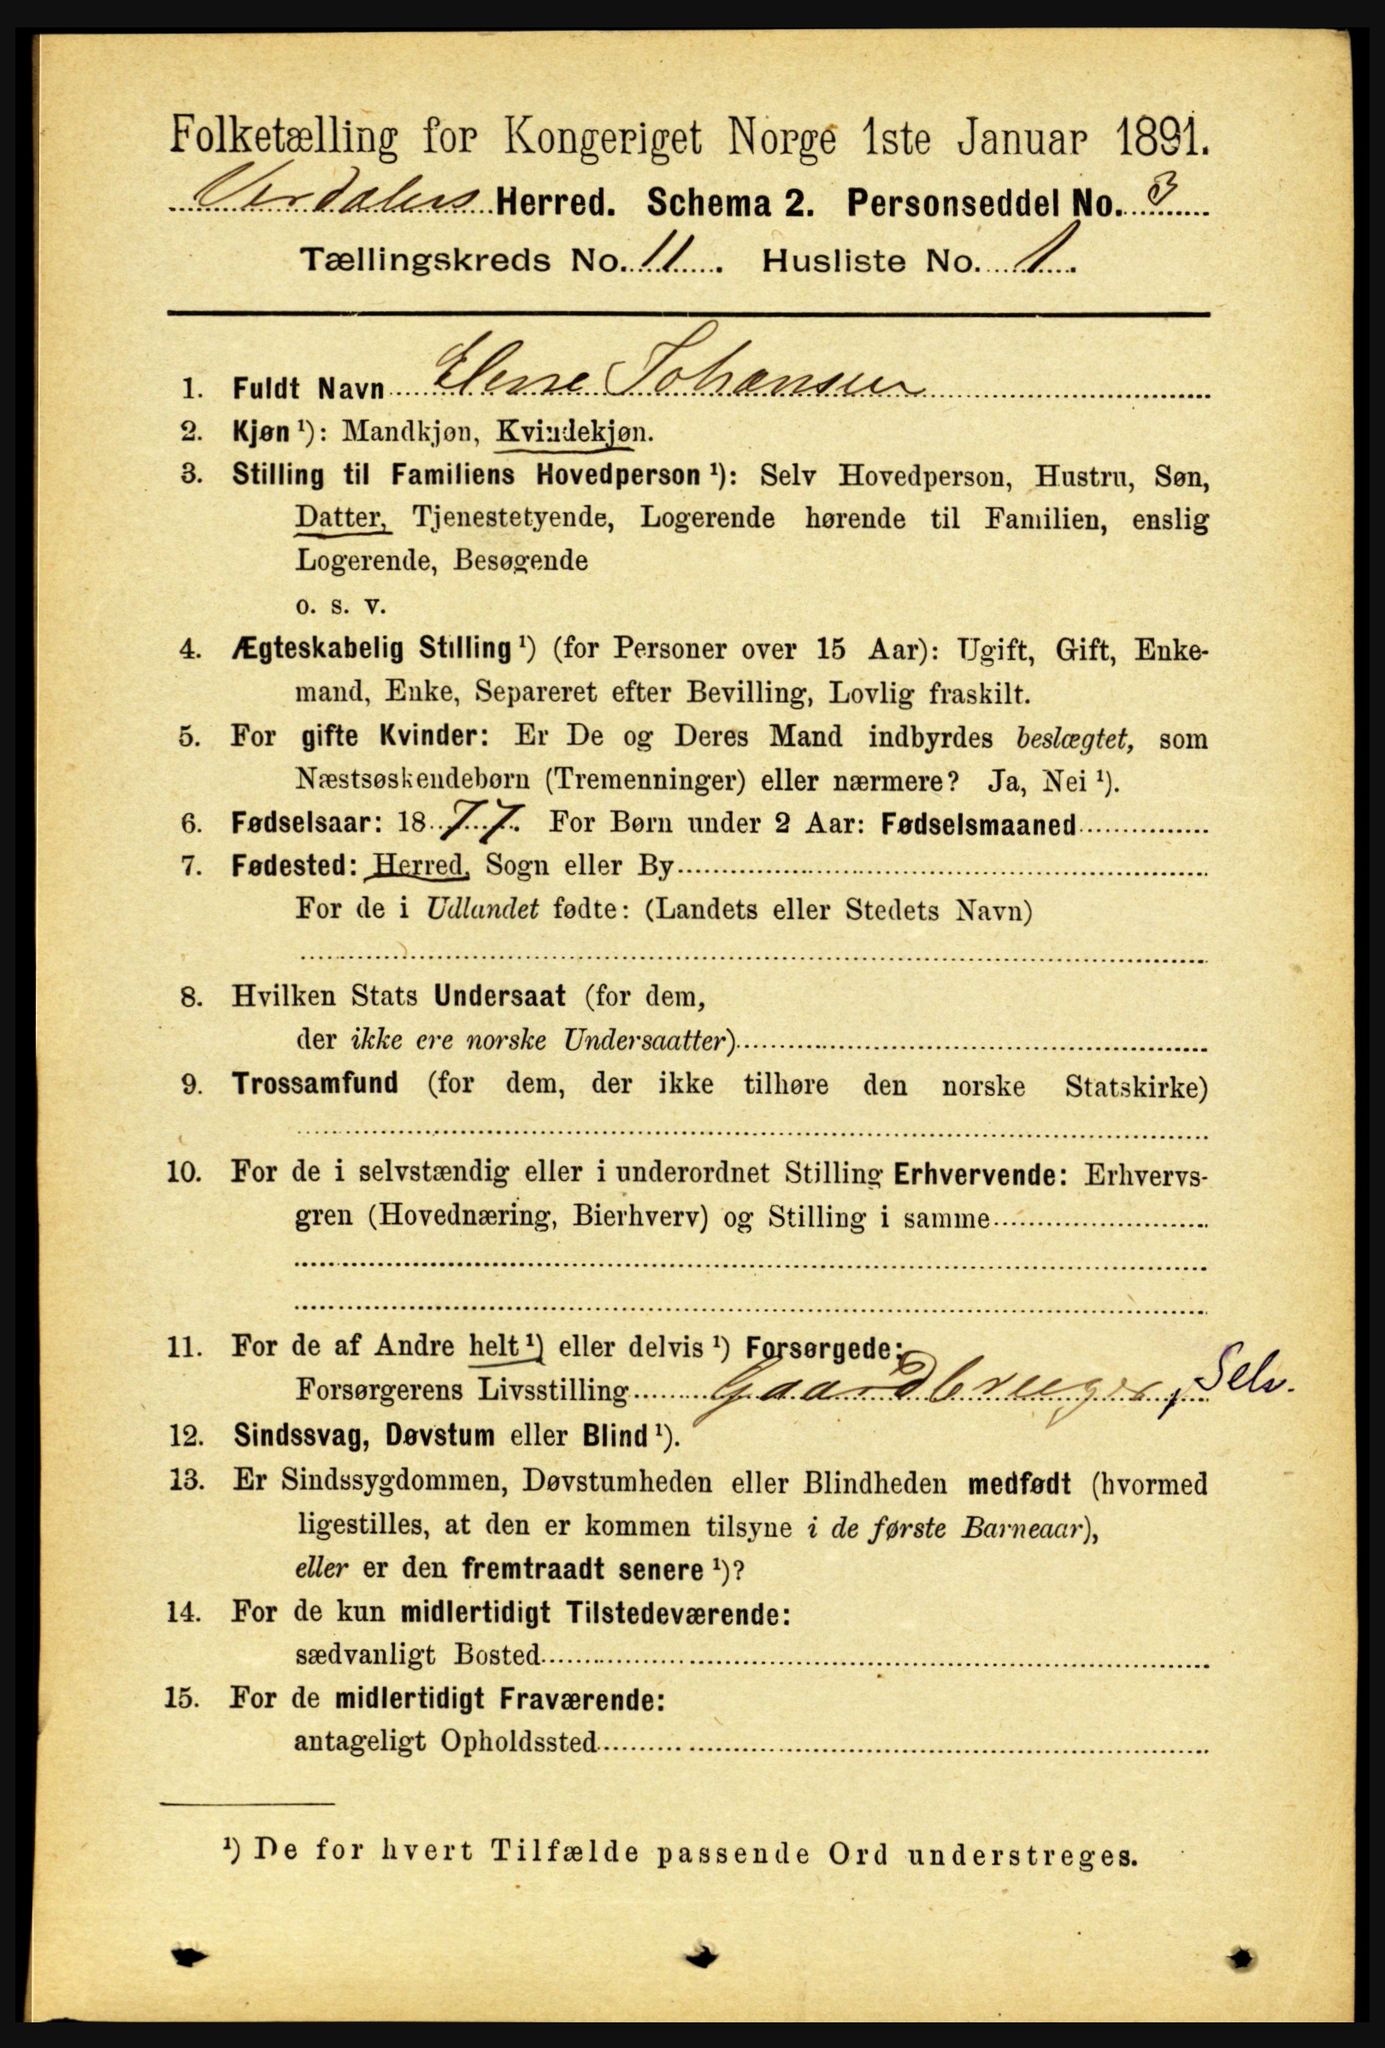 Folketælling for Kongeriget Norge 1ste Januar 1891.
Verdalens Herred. Schema 2. Personseddel No. 3
Tællingskreds No. 11. Husliste No. 1.
1. Fuldt Navn Johansen
2. Kjøn ¹): Mandkjøn, Kvindekjøn.
3. Stilling til Familiens Hovedperson ¹): Selv Hovedperson, Hustru, Søn,
Datter, Tjenestetyende, Logerende hørende til Familien, enslig
Logerende, Besøgende
o. s. v.
4. Ægteskabelig Stilling ¹) (for Personer over 15 Aar): Ugift, Gift, Enke-
mand, Enke, Separeret efter Bevilling, Lovlig fraskilt.
5. For gifte Kvinder: Er De og Deres Mand indbyrdes beslægtet, som
Næstsøskendebørn (Tremenninger) eller nærmere? Ja, Nei ¹).
6. Fødselsaar: 1877. For Børn under 2 Aar: Fødselsmaaned
7. Fødested: Herred, Sogn eller By
For de i Udlandet fødte: (Landets eller Stedets Navn)
8. Hvilken Stats Undersaat (for dem,
der ikke ere norske Undersaatter)
9. Trossamfund (for dem, der ikke tilhøre den norske Statskirke)
10. For de i selvstændig eller i underordnet Stilling Erhvervende: Erhvervs-
gren (Hovednæring, Bierhverv) og Stilling i samme
11. For de af Andre helt ¹) eller delvis ¹) Forsørgede:
Forsørgerens Livsstilling Gaardbruger, Selv.
12. Sindssvag, Døvstum eller Blind ¹).
13. Er Sindssygdommen, Døvstumheden eller Blindheden medfødt (hvormed
ligestilles, at den er kommen tilsyne i de første Barneaar),
eller er den fremtraadt senere ¹)?
14. For de kun midlertidigt Tilstedeværende:
sædvanligt Bosted
15. For de midlertidigt Fraværende:
antageligt Opholdssted
¹) De for hvert Tilfælde passende Ord understreges.